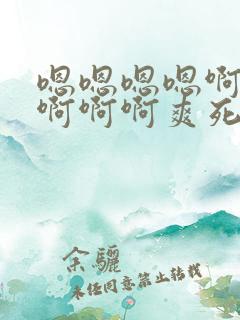 嗯嗯嗯嗯啊
啊啊啊爽死
余骊
未经同意禁止转载